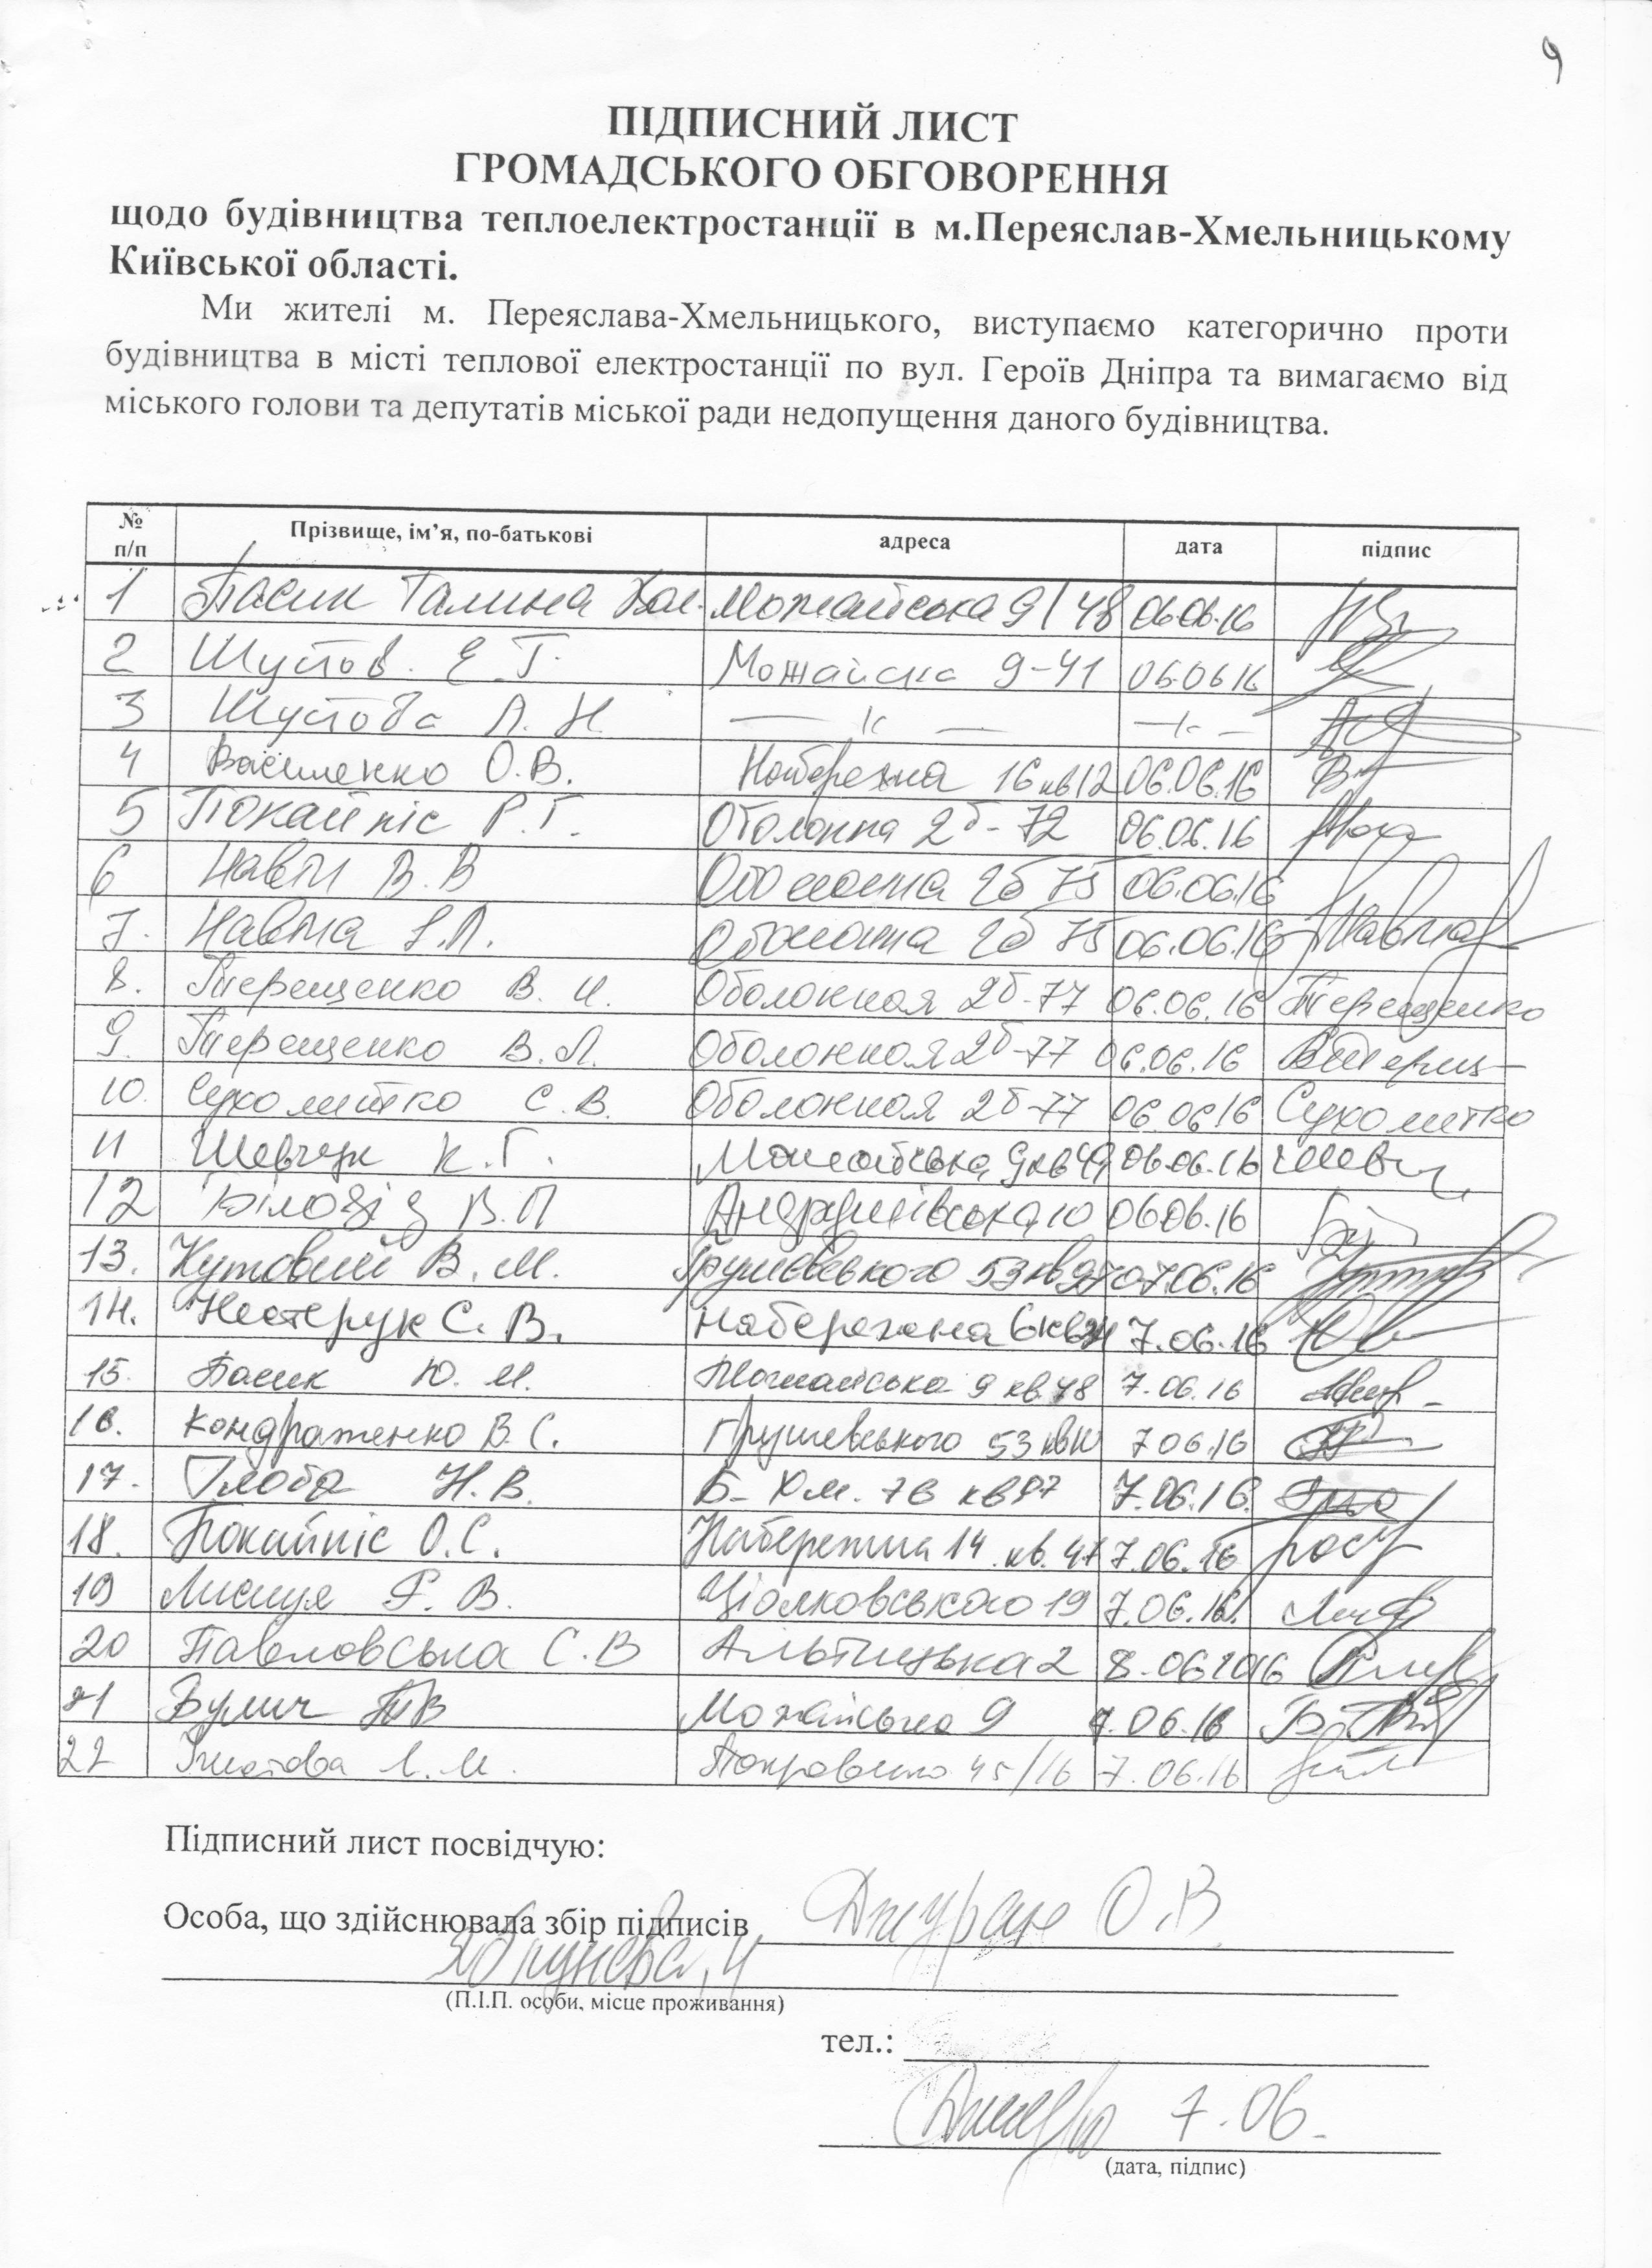 9
ПІДПИСНИЙ ЛИСТ
ГРОМАДСЬКОГО ОБГОВОРЕННЯ
щодо будівництва теплоелектростанції в м.Переяслав-Хмельницькому
Київської області.
Ми жителі м. Переяслава-Хмельницького, виступаємо категорично проти
будівництва в місті теплової електростанції по вул. Героїв Дніпра та вимагаємо від
міського голови та депутатів міської ради недопущення даного будівництва.
№ п/п Прізвище, ім’я, по-батькові адреса дата підпис
1 Басик Галина Можайська 9/48 06.06.16
2 Шустов Є.Г. Можайська 9-41 06.06.16
3 Шустова Л.Н.
4 Василенко О.В. Набережна 16 кв12 06.06.16
5 Покайпіс Р.Г. Оболонна 2б-72 06.06.16
6 В.В Оболонна 2б 75 06.06.16
7. Оболонна 2б 75 06.06.16
8. Терещенко В.И. Оболонная 2б-77 06.06.16 Терещенко
9. Терещенко В.Л. Оболонная 2б-77 06.06.16
10. Сухомитко С.В. Оболонная 2б-77 06.06.16 Сухомитко
11 Шевчук К.Г. Можайська 9 кв49 06.06.16
12 В.П Андрушівська 10 06.06.16
13. Кутовий В.М. Грушевського 53 07.06.16
14. Нестерук С.В. Набережна 7.06.16
15. Басик Ю.М. Можайська 9 кв.48 7.06.16
16. Кондратенко В.С. Грушевського 53 7.06.16
17. Глоба Н.В. Б-Хм. 7в кв87 7.06.16.
18. Покайпіс О.С. Набережна 14 кв. 47 7.06.16
19 Лисиця Р.В. Ціолковського 19 7.06.16.
20 Павловська С.В Альтицька 2 8.06 2016
21 Булич ТВ Можайська 9 7.06.16
22 Л.М. 45/16 7.06.16
Підписний лист посвідчую:
Особа, що здійснювала збір підписів О.В
(П.І.П. особи, місце проживання)
тел.:
7.06.
(дата, підпис)